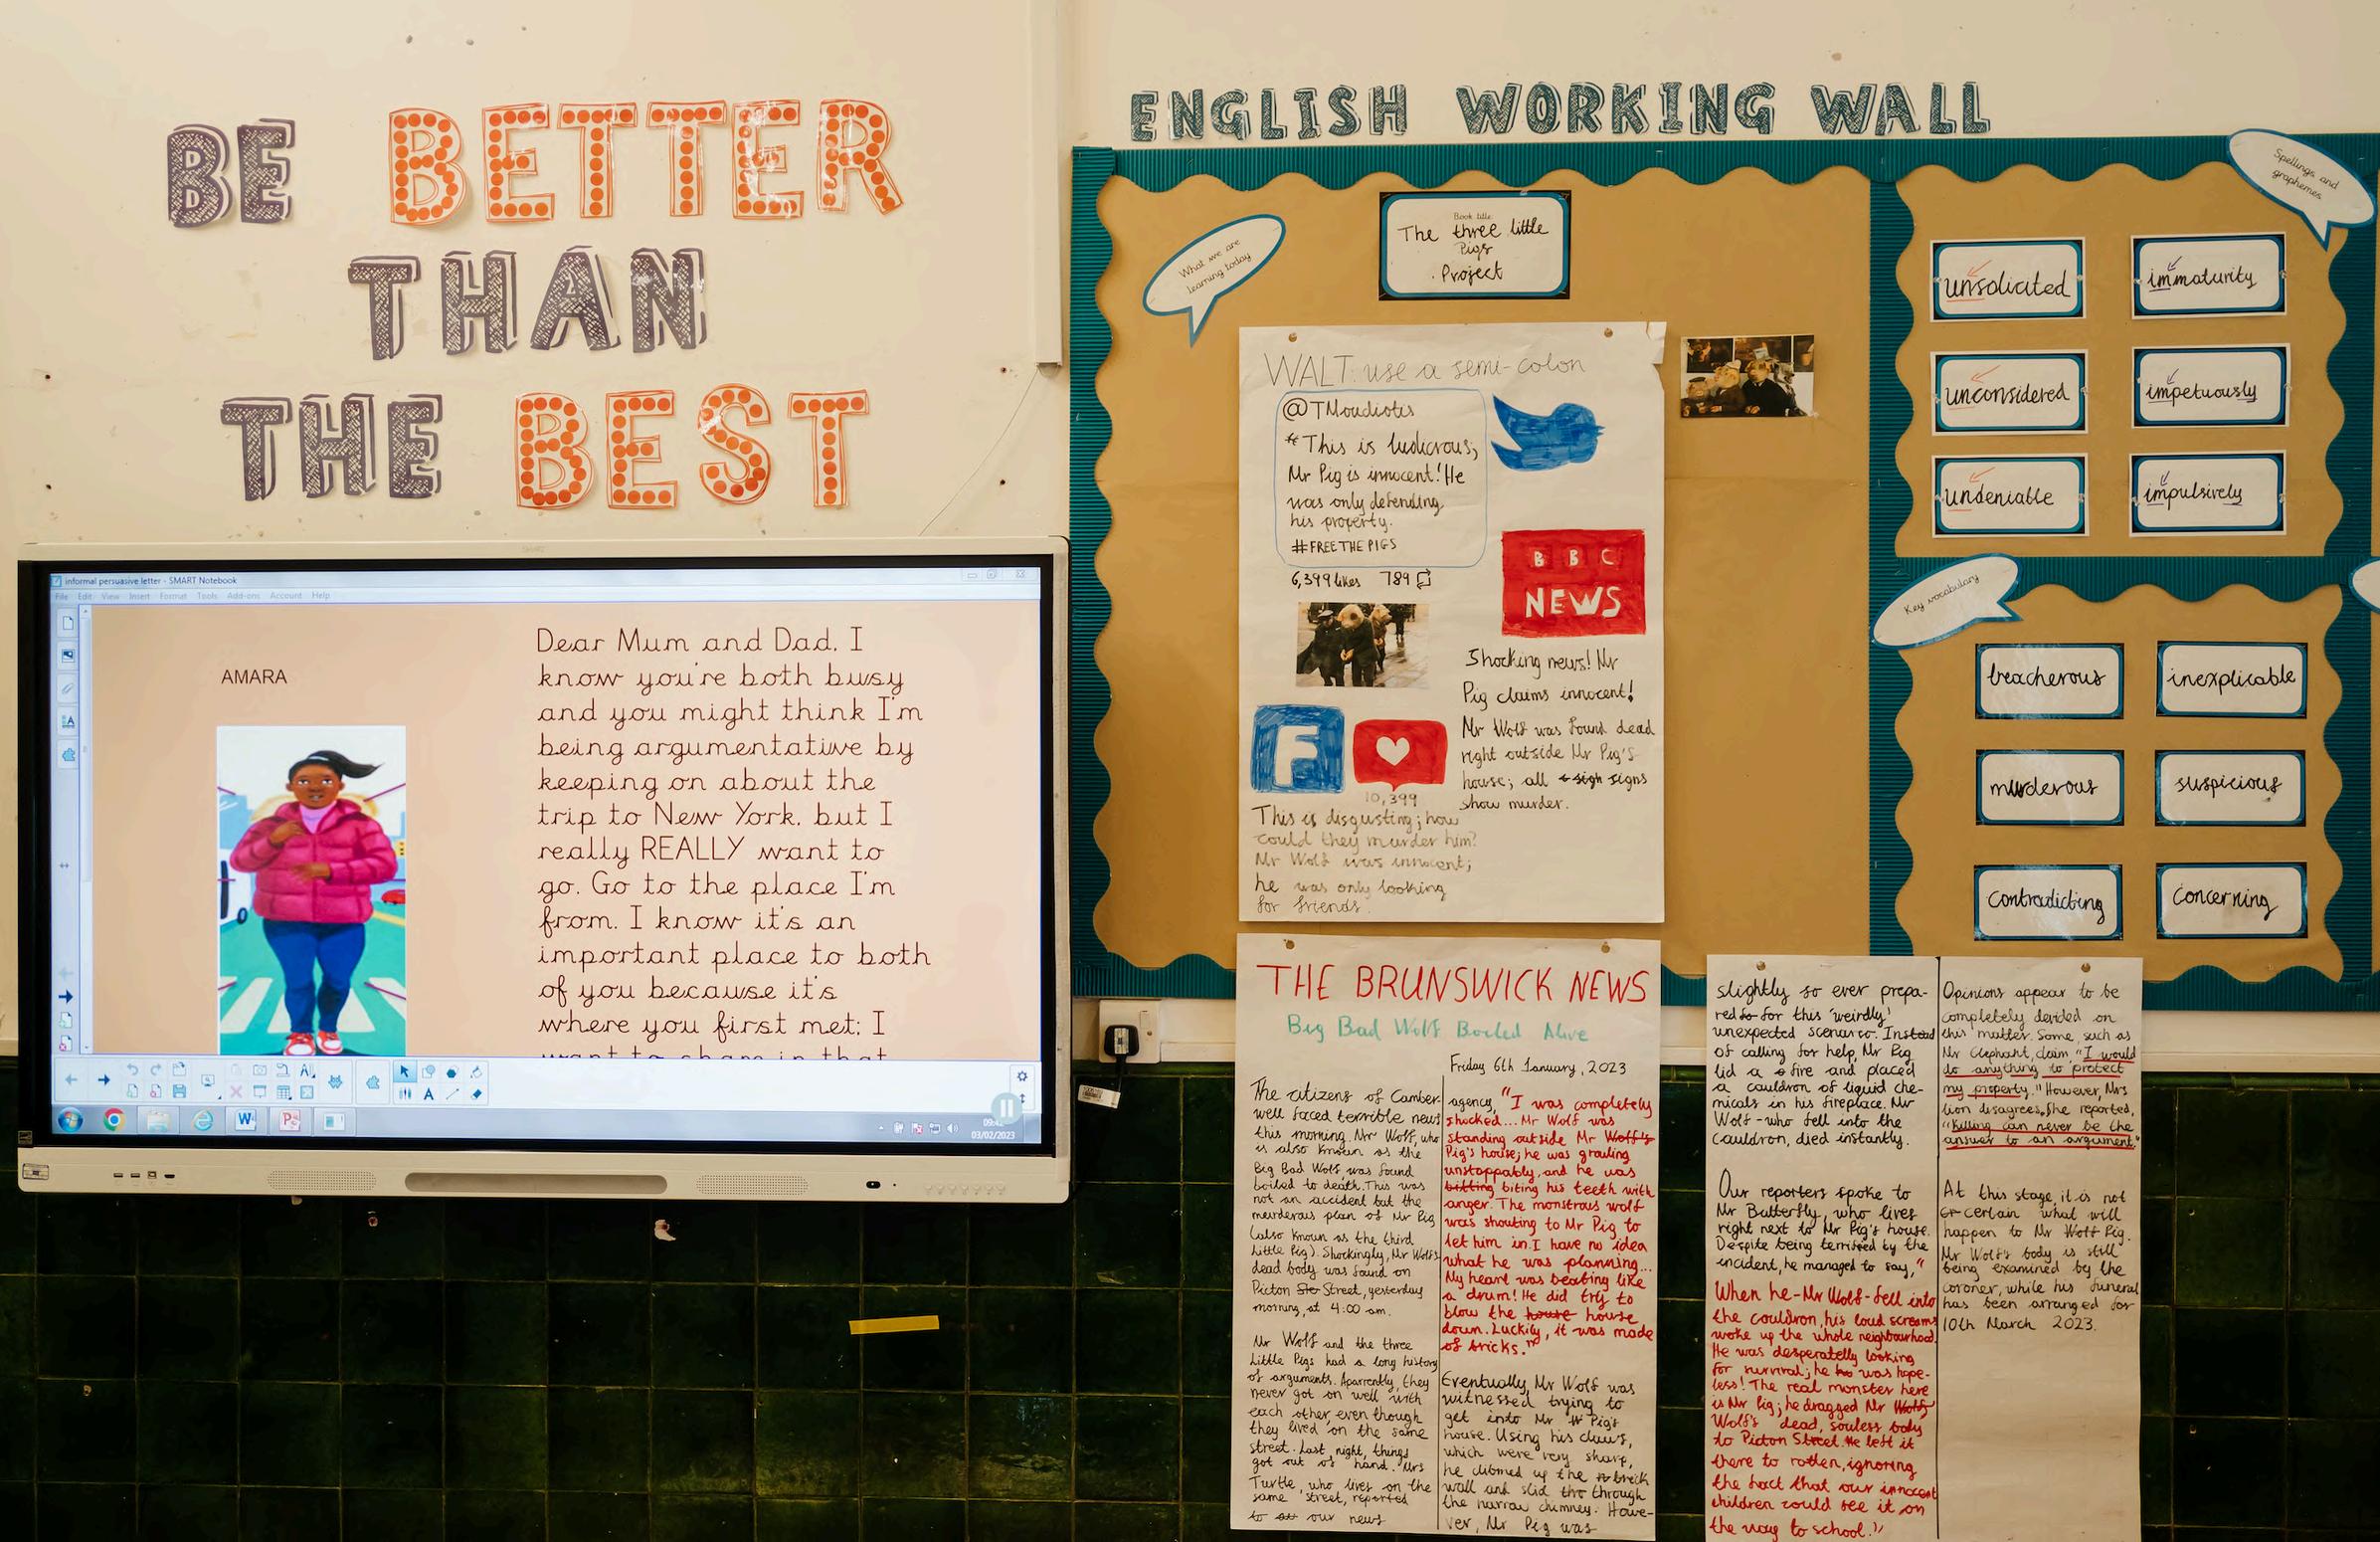 BE BETTER
THAN
THE BEST
informal persuasive letter - SMART Notebook
File Edit View Insert Format Tools Add-ons Account Help
AMARA
Dear Mum and Dad, I
know you're both busy
and you might think I'm
being argumentative by
keeping on about the
trip to New York, but I
really REALLY want to
go. Go to the place I'm
from. I know it's an
important place to both
of you because it's
where you first met; I
want to share in that
03/02/2023
ENGLISH WORKING WALL
What we are
learning today
Book title:
The three little
Pigs
Project
WALT: use a semi-colon
@TMoudiotis
"This is ludicrous;
Mr Pig is innocent! He
was only defending
his property.
#FREETHEPIGS
6,399 likes 789
BBC
NEWS
Shocking news! Mr
Pig claims innocent!
Mr Wolf was found dead
right outside Mr Pig's
house; all sigh signs
show murder.
F
10,399
This is disgusting; how
could they murder him?
Mr Wolf was innocent;
he was only looking
for friends.
Spellings and
graphemes
unsolicited
immaturity
unconsidered
impetuously
undeniable
impulsively
Key vocabulary
treacherous
inexplicable
murderous
suspicious
contradicting
concerning
THE BRUNSWICK NEWS
Big Bad Wolf Boiled Alive
Friday 6th January, 2023
The citizens of Camber-
well faced terrible news
this morning. Mr Wolf, who
is also known as the
Big Bad Wolf was found
boiled to death. This was
not an accident but the
murderous plan of Mr Pig
(also known as the third
Little Pig). Shockingly, Mr Wolf's
dead body was found on
Picton Ste Street, yesterday
morning, at 4:00 am.
Mr Wolf and the three
Little Pigs had a long history
of arguments. Aparrently, they
never got on well with
each other, even though
they lived on the same
street. Last night, things
got out of hand. Mrs
Turtle, who lives on the
same street, reported
to our news
agency, "I was completely
shocked... Mr Wolf was
standing outside Mr Wolf's
Pig's house; he was growling
unstoppably, and he was
bitting biting his teeth with
anger. The monstrous wolf
was shouting to Mr Pig to
let him in. I have no idea
what he was planning...
My heart was beating like
a drum! He did try to
blow the house house
down. Luckily, it was made
of bricks."
Eventually, Mr Wolf was
witnessed trying to
get into Mr W Pig's
house. Using his claws,
which were very sharp,
he climbed up the brick
wall and slid thro through
the narrow chimney. Howe-
ver, Mr Pig was
slightly so ever prepa-
red for this 'weirdly'
unexpected scenario. Instead
of calling for help, Mr Pig
lid a fire and placed
a cauldron of liquid che-
micals in his fireplace. Mr
Wolf - who fell into the
cauldron, died instantly.
Our reporters spoke to
Mr Butterfly, who lives
right next to Mr Pig's house.
Despite being terrified by the
incident, he managed to say, "
When he - Mr Wolf - fell into
the cauldron, his loud screams
woke up the whole neighbourhood.
He was desperatelly looking
for survival; he was hope-
less! The real monster here
is Mr Pig; he dragged Mr Wolfs
Wolf's dead, souless body
to Picton Street. He left it
there to rotten, ignoring
the fact that our innocent
children could see it on
the way to school."
Opinions appear to be
completely divided on
this matter. Some, such as
Mr Elephant, claim, "I would
do anything to protect
my property." However, Mrs
Lion disagrees. She reported,
"Killing can never be the
answer to an argument."
At this stage, it is not
cr certain what will
happen to Mr Wolf Pig.
Mr Wolf's body is still
being examined by the
coroner, while his funeral
has been arranged for
10th March 2023.